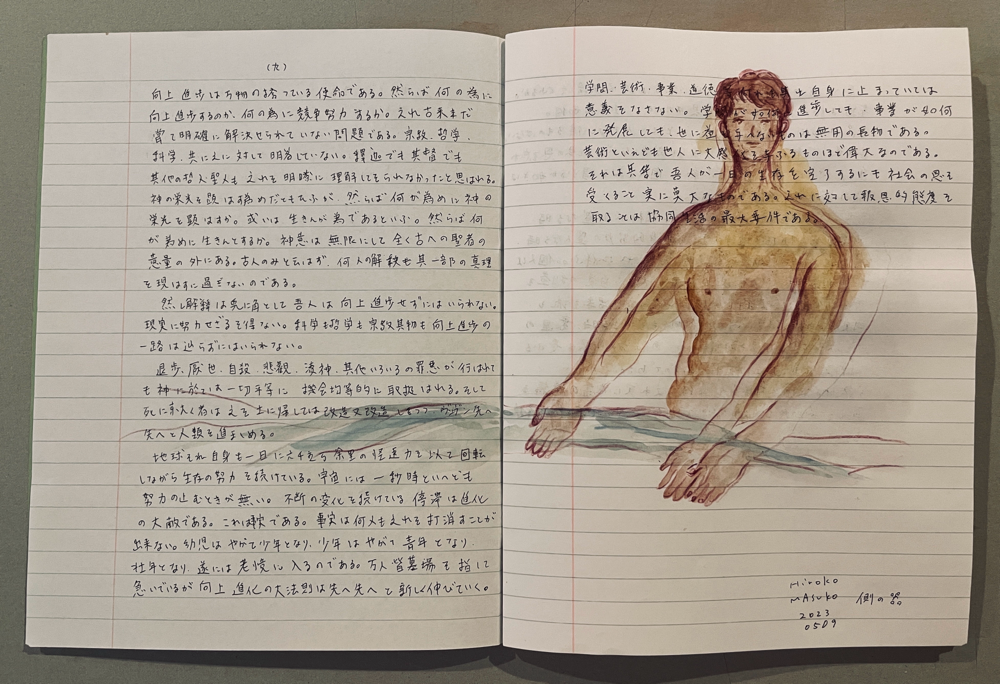 (九)
向上進歩は万物の持っている使命である。然らば何の為に
向上進歩するのか、何の為に競争努力するか。之れ古来まで
嘗て明確に解決せられていない問題である。宗教、哲学、
科学、共に之に対して明答していない。釋迦でも基督でも
其他の哲人聖人も之れを明瞭に理解してをられなかったと思はれる。
神の栄光を顕はす為めだとも云ふが、然らば何が為めに神の
栄光を顕はすか。或いは生きんが為であるといふ。然らば何
が為めに生きんとするか。神意は無限にして全く古への聖者の
意量の外にある。古人のみと云はず、何人の解釋も其一部の真理
を現はすに過ぎないのである。
然し解釋は兎に角として吾人は向上進歩せずにはいられない。
現実に努力せざるを得ない。科学も哲学も宗教其物も向上進歩の
一路は辿らずにはいられない。
退歩、厭世、自殺、悲觀、凄神、其他いろいろの罪悪が行はれて
も神に於ては一切平等に機会均等的に取扱はれる。そして
死に行く者は之を土に帰しては改造又改造しつつ グングン先へ
先へと人類を進ましめる。
地球それ自身も一日に六千万余里の怪速力を以て回転
しながら生存の努力を続けている。宇宙には一秒時といへども
努力の止むときが無い。不断の変化を続けている 停滞は進化
の大敵である。これは事実である。事実は何人も之れを打消すことが
出来ない。幼児はやがて少年となり、少年はやがて青年となり
壮年となり、遂には老境に入るのである。万人皆墓場を指して
急いでいるが向上進化の大法則は先へ先へと新しく伸びていく。
学問、芸術、事業、道徳 自身に止まっていては
意義をなさない。学 進歩しても、事業が如何
に発展しても、世に は無用の長物である。
芸術といえども世人に大感 ものほど偉大なのである。
それは兎角で吾人が一日の生存を完了するにも社会の恩を
受くること実に莫大なものである。之れに対して報恩的態度を
取ることは協同生活の最大要件である。
Hiroko
MASUKO 側の器
2023
0509